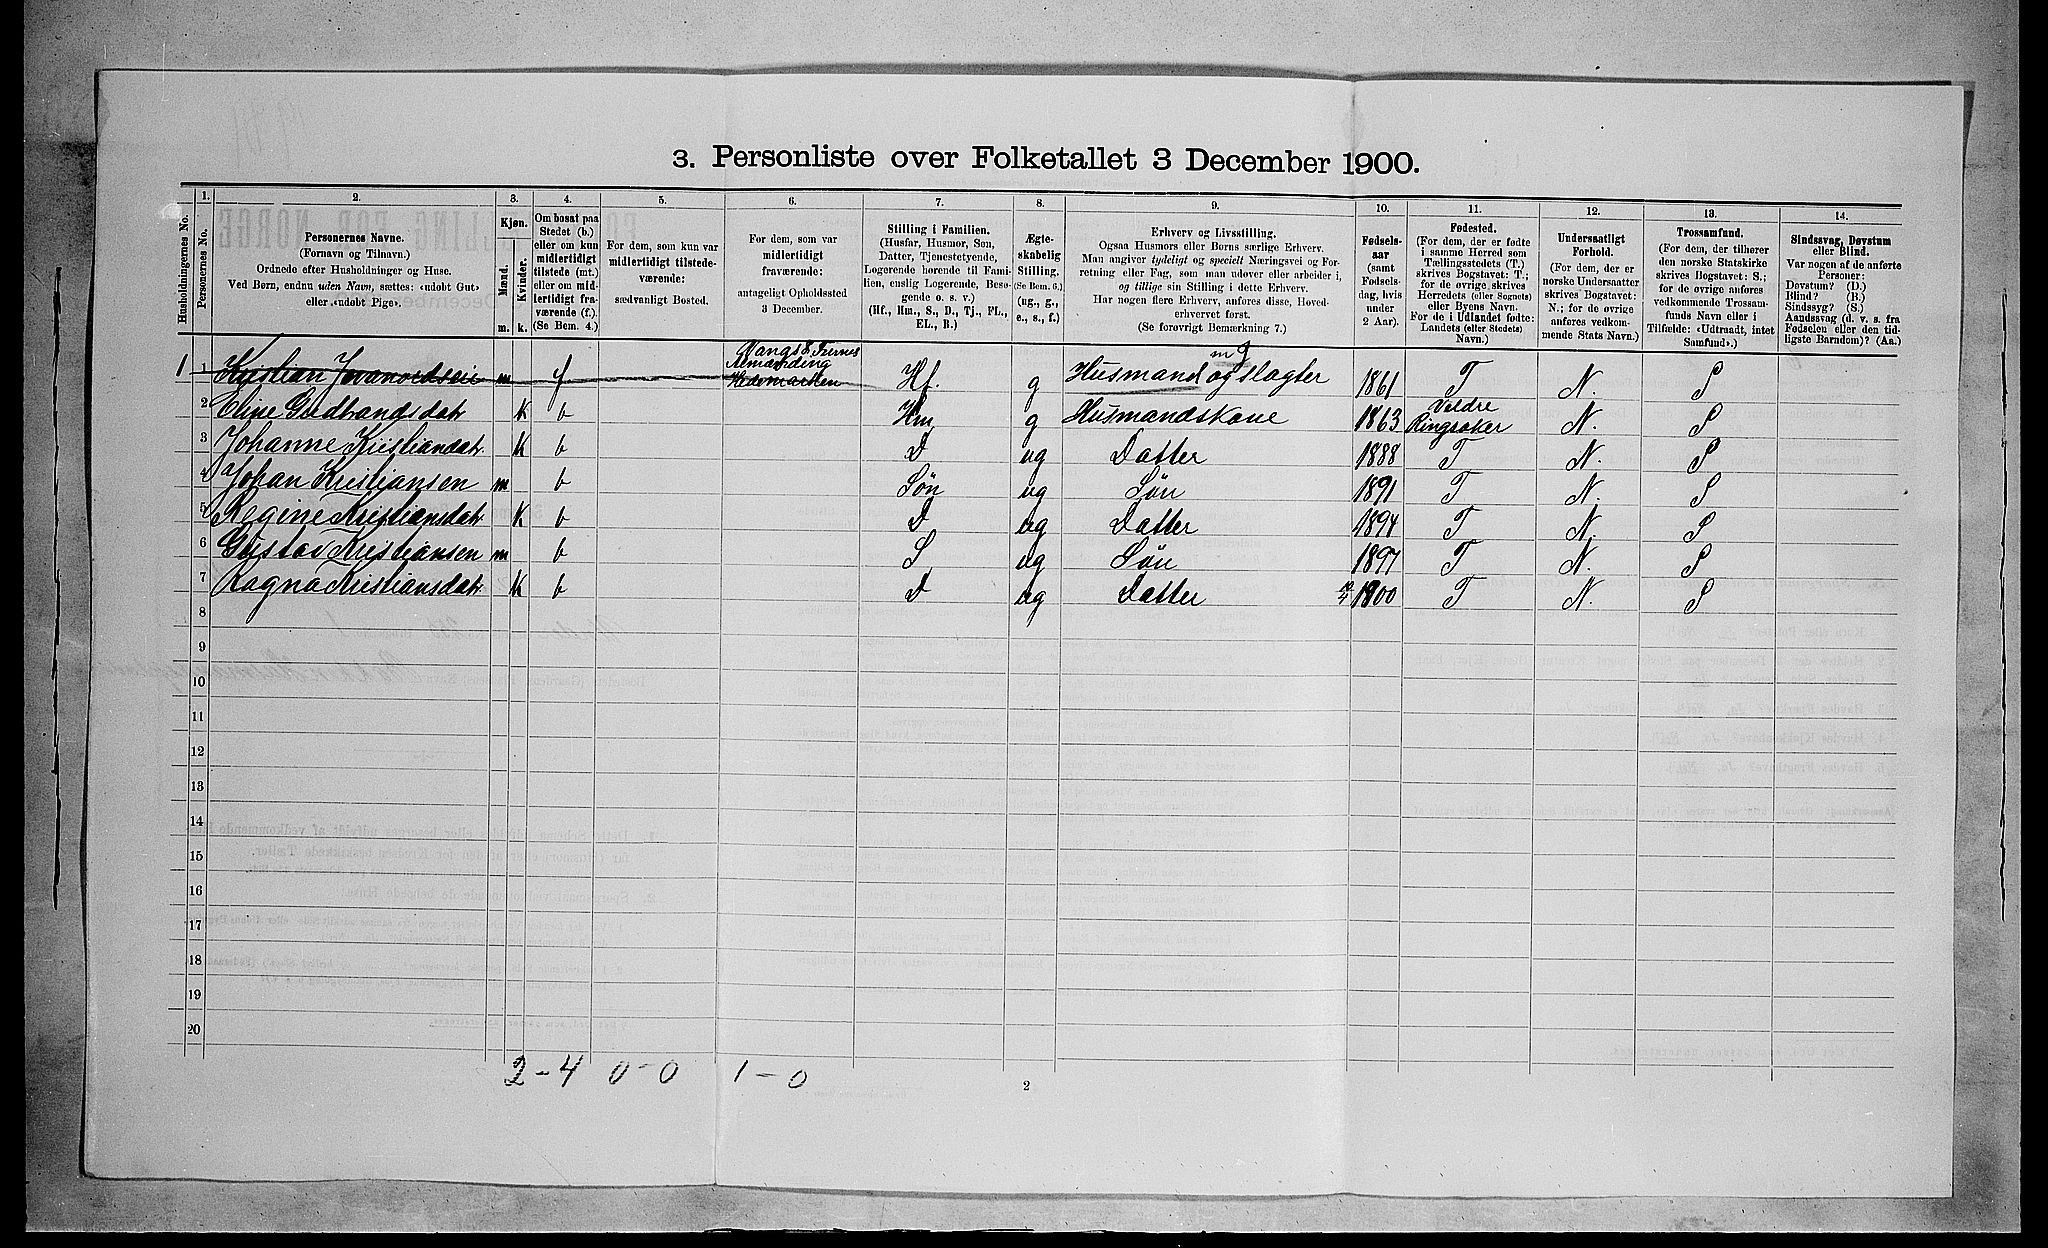 3. Personliste over Folketallet 3 December 1900.
Husholdningernes No.
1.
Personernes No.
2.
Personernes Navne.
(Fornavn og Tilnavn.)
Ordnede efter Husholdninger og Huse.
Ved Børn, endnu uden Navn, sættes: «udøbt Gut»
eller «udøbt Pige».
3.
Kjøn.
Mænd.
Kvinder.
m.
k.
4.
Om bosat paa
Stedet (b.)
eller om kun
midlertidigt
tilstede (mt.)
eller om mid-
lertidigt fra-
værende (f.).
(Se Bem. 4.)
5.
For dem, som kun var
midlertidigt tilstede-
værende:
sædvanligt Bosted.
6.
For dem, som var
midlertidigt
fraværende:
antageligt Opholdssted
3 December.
7.
Stilling i Familien.
(Husfar, Husmor, Søn,
Datter, Tjenestetyende,
Logerende hørende til Fami-
lien, enslig Logerende, Besø-
gende o. s. v.)
(Hf., Hm., S., D., Tj., FL.,
EL., B.)
8.
Ægte-
skabelig
Stilling.
(Se Bem. 6.)
(ug., g.,
e., s., f.)
9.
Erhverv og Livsstilling.
Ogsaa Husmors eller Børns særlige Erhverv.
Man angiver tydeligt og specielt Næringsvei og For-
retning eller Fag, som man udøver eller arbeider i,
og tillige sin Stilling i dette Erhverv.
Har nogen flere Erhverv, anføres disse, Hoved-
erhvervet først.
(Se forøvrigt Bemærkning 7.)
10.
Fødsels-
aar
(samt
Fødsels-
dag, hvis
under
2 Aar).
11.
Fødested.
(For dem, der er fødte
i samme Herred som
Tællingsstedets (T.)
skrives Bogstavet: T.;
for de øvrige skrives
Herredets (eller Sognets)
eller Byens Navn.
For de i Udlandet fødte:
Landets (eller Stedets)
Navn.)
12.
Undersaatligt
Forhold.
(For dem, der er
norske Undersaatter
skrives Bogstavet:
N.; for de øvrige
anføres vedkom-
mende Stats Navn.)
13.
Trossamfund.
(For dem, der tilhører
den norske Statskirke
skrives Bogstavet: S.;
for de øvrige anføres
vedkommende Trossam-
funds Navn eller i
Tilfælde: «Udtraadt, intet
Samfund».)
14.
Sindssvag, Døvstum
eller Blind.
Var nogen af de anførte
Personer:
Døvstum? (D.)
Blind? (B.)
Sindssyg? (S.)
Aandssvag (d. v. s. fra
Fødselen eller den tid-
ligste Barndom)? (Aa.)
Vangs &
Hedemarken
1 1 Kristian m f Hf. g Husmand og slagter 1861 T N. S
2 Eline Gudbrandsdatr K b Hm g Husmandskone 1863 Veldre Ringsaker N. S
3 Johanne Kristiandatr. K b D ug Datter 1888 T N. S
4 Johan Kristiansen m b Søn ug Søn 1891 T N. S
5 Regine Kristiansdatr. K b D ug Datter 1894 T N. S
6 Gustav Kristiansen m b S ug Søn 1897 T N. S
7 Ragna Kristiansdatr. K b D ug Datter 1900 T N. S
8
9
10
11
12
13
14
15
16
17
18
19
20
2 - 4 0 - 0 1 - 0
2